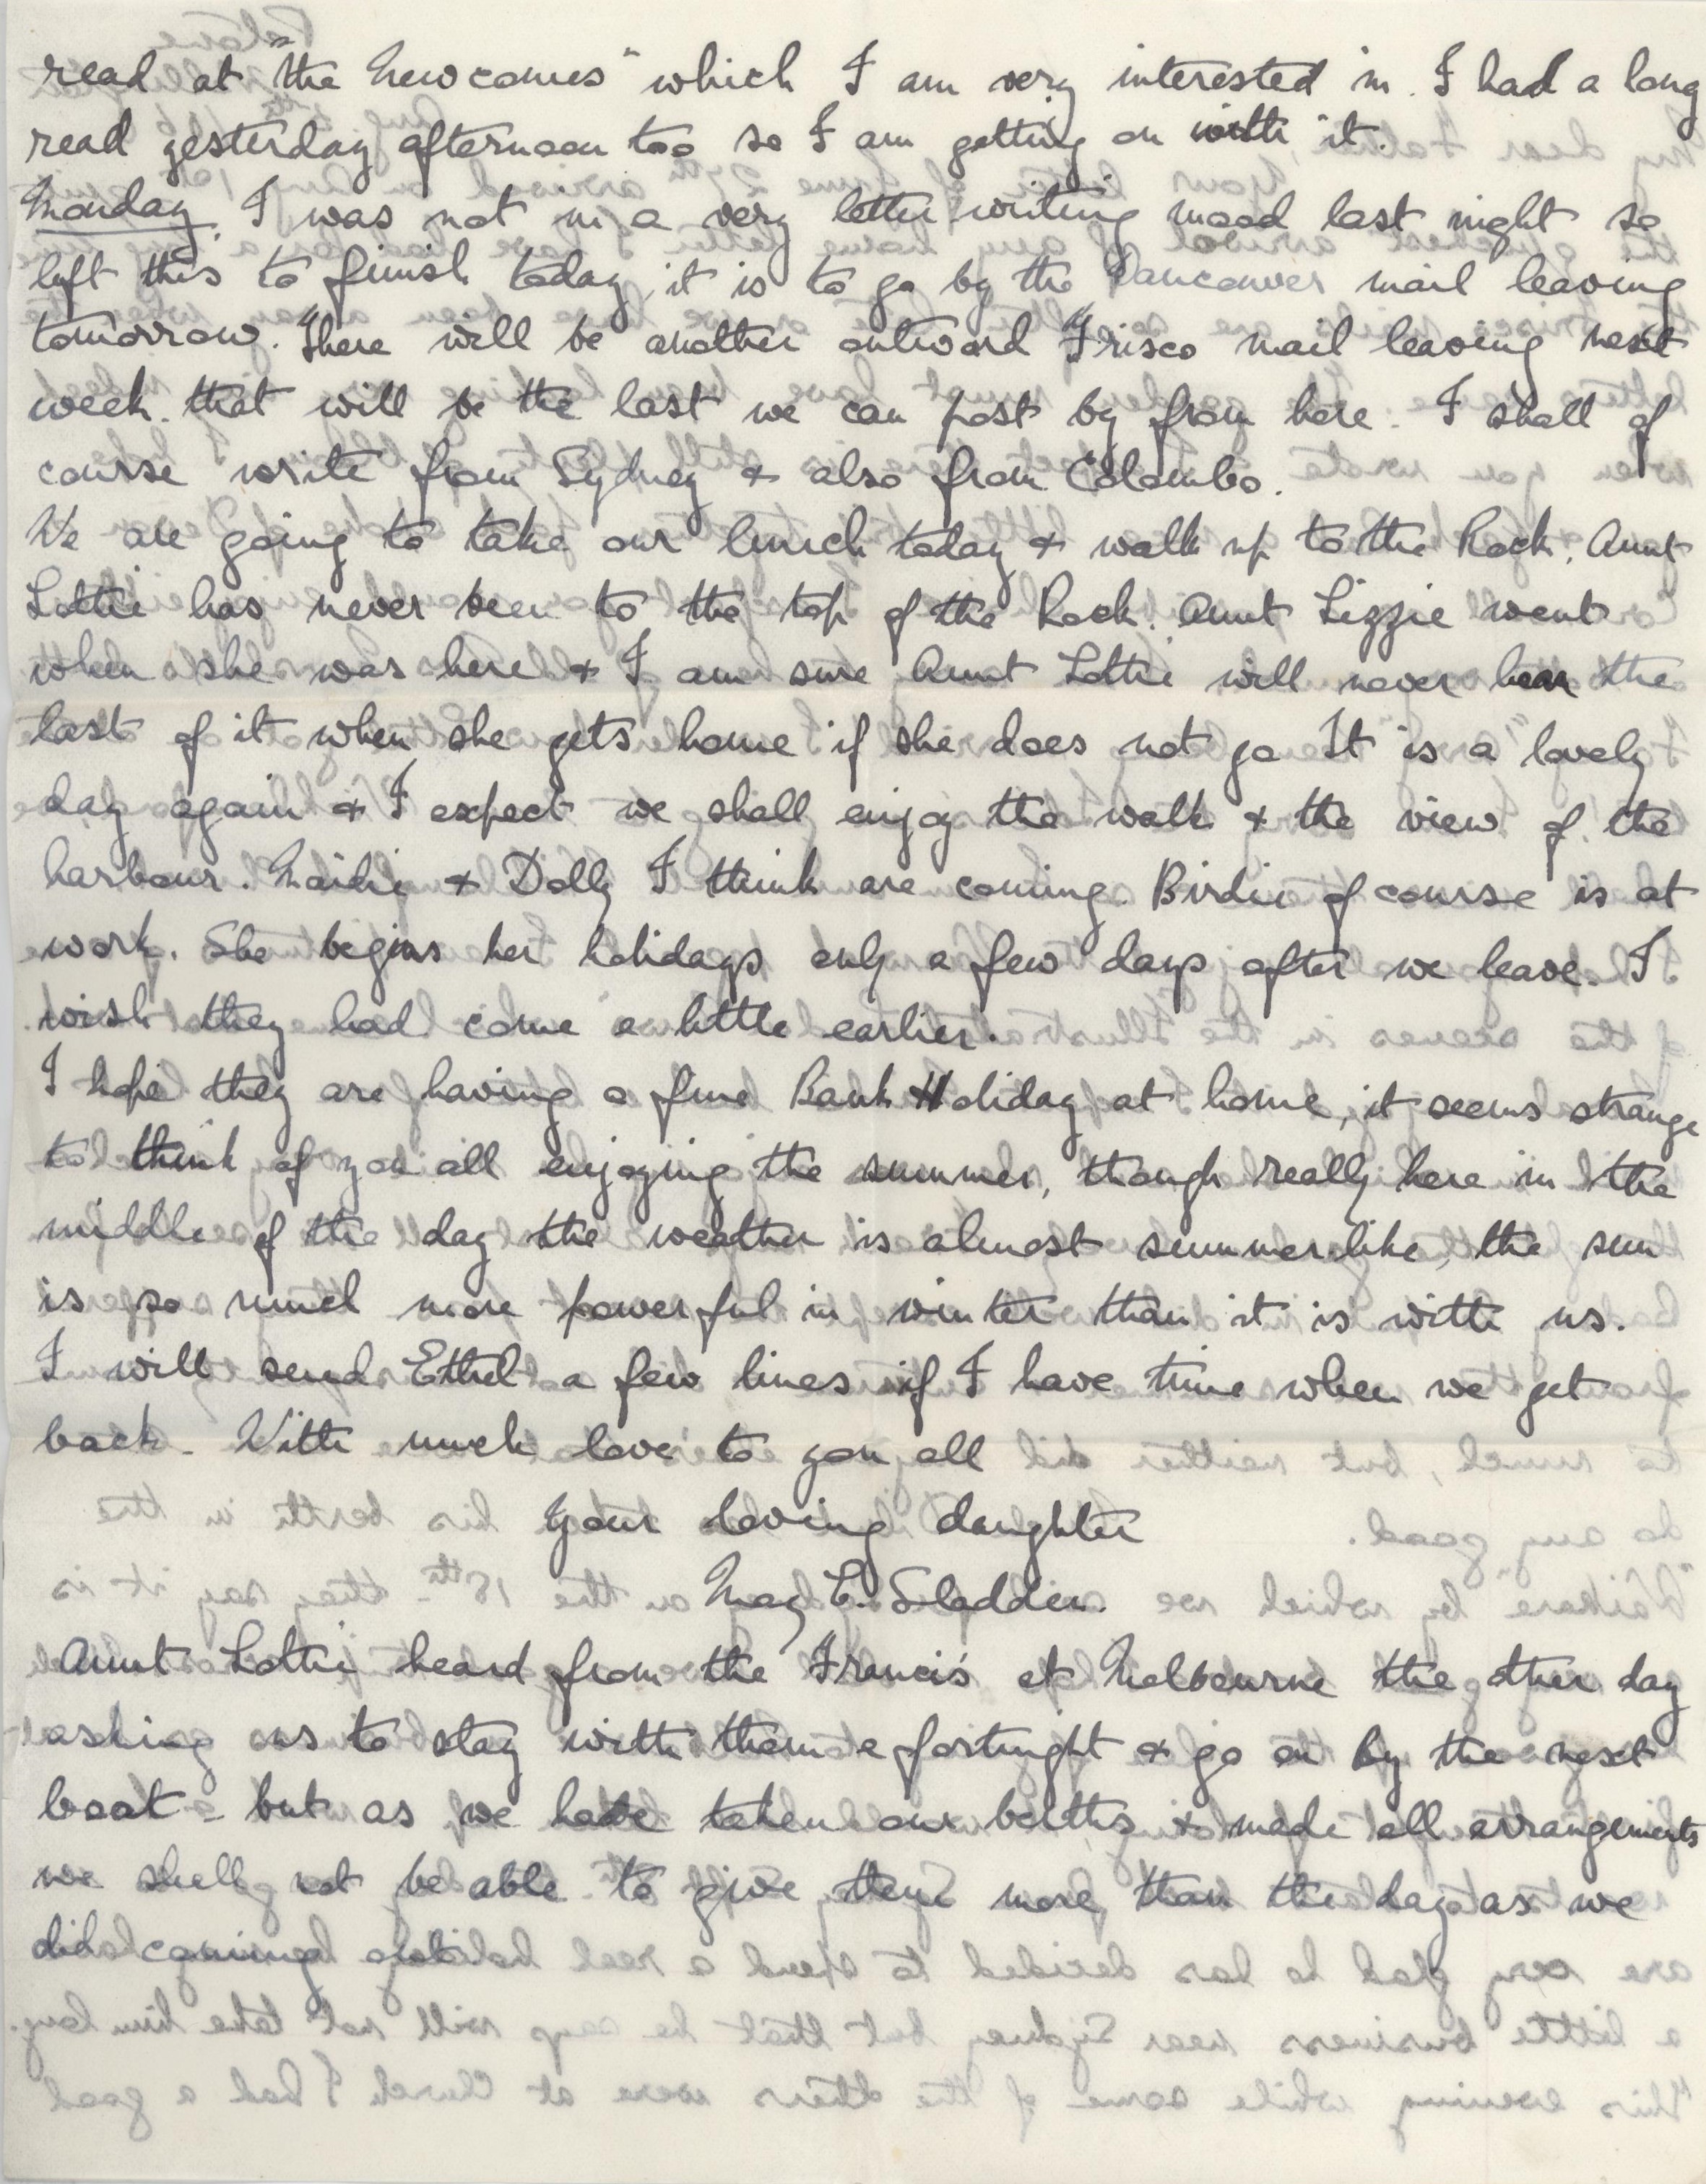 read at "the Newcomes" which I am very interested in. I had a long
read yesterday afternoon too so I am getting on with it.
Monday. I was not in a very letter writing mood last night so
left this to finish today, it is to go by the Vancouver mail leaving
tomorrow. There will be another outward 'Frisco mail leaving next
week. that will be the last we can post by from here. I shall of
course write from Sydney & also from Colombo.
We are going to take our lunch today & walk up to the Rock. Aunt
Lottie has never been to the top of the Rock. Aunt Lizzie went
when she was here & I am sure Aunt Lottie will never hear the
last of it when she gets home if she does not go It is a lovely
day again & I expect we shall enjoy the walk & the view of the
harbour. Maidie & Dolly I think are coming. Birdie of course is at
work. She begins her holidays only a few days after we leave. I
wish they had come a little earlier.
I hope they are having a fine Bank Holiday at home, it seems strange
to think of you all enjoying the summer, though really here in the
middle of the day the weather is almost summer-like, the sun
is so much more powerful in winter than it is with us.
I will send Ethel a few lines if I have time when we get
back. With much love to you all
Your loving daughter
May E. Sladden.
Aunt Lottie heard from the Francis' at Melbourne the other day
asking us to stay with them a fortnight & go on by the next
boat - but as we have taken our berths & made all arrangements
we shall not be able to give them more than the day as we
did coming out.